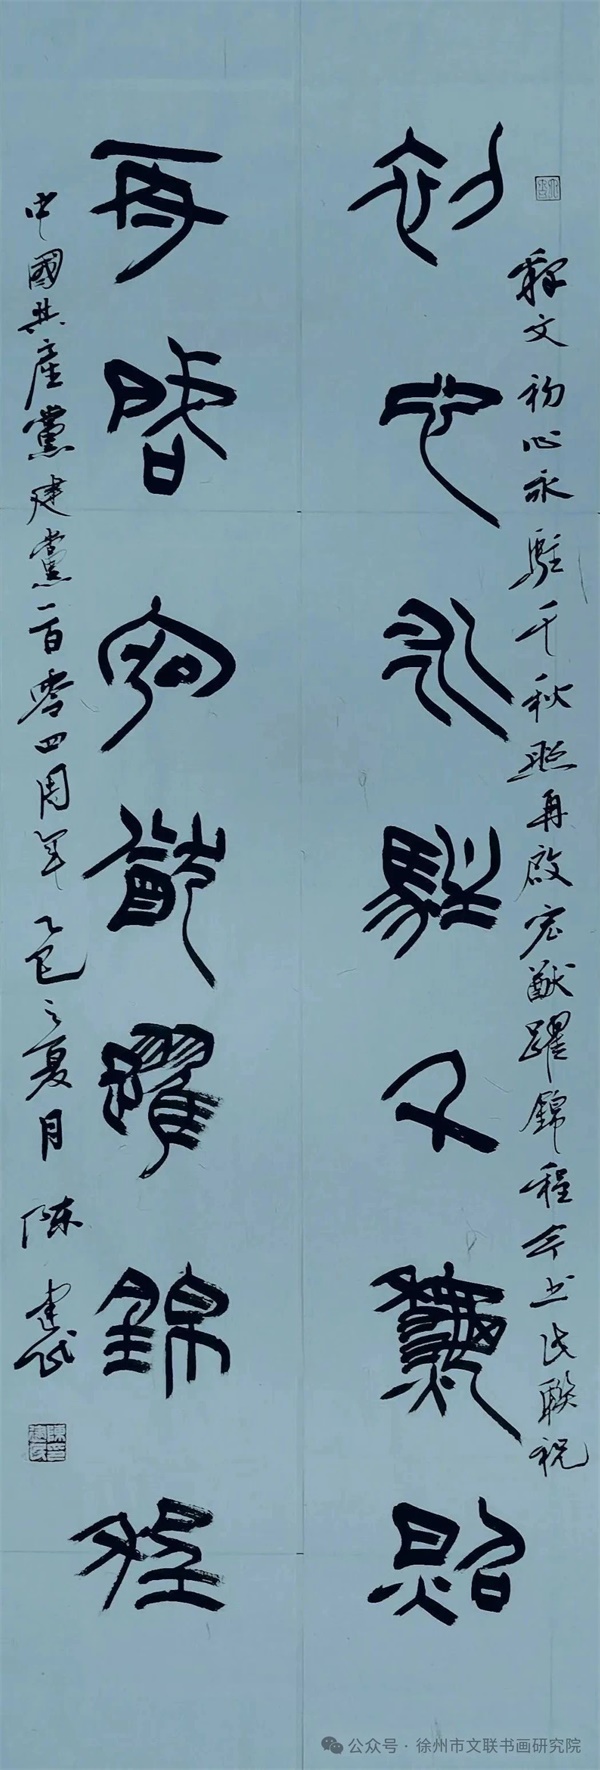 釋文初心永駐千秋照再啟宏猷躍錦程今书此聯祝
初心永駐千秋照
再啟宏猷躍錦程
中國共產黨建黨一百零四周年乙巳之夏月陳建
公众号·徐州市文联书画研究院